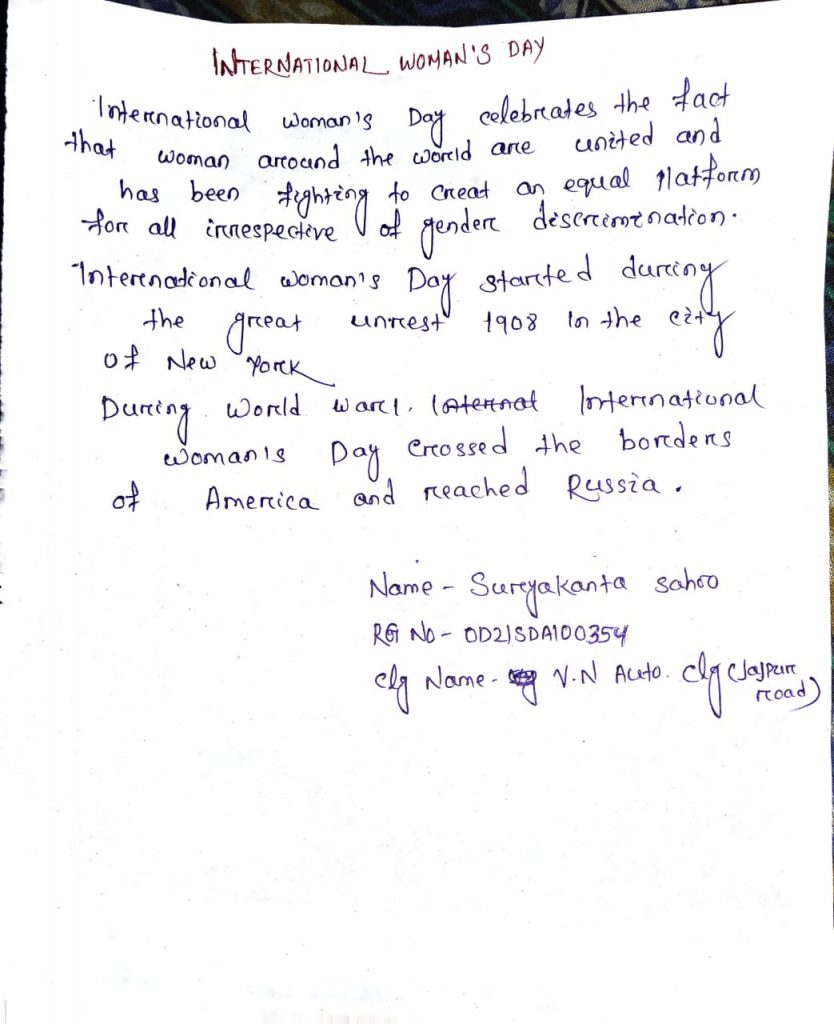 INTERNATIONAL WOMAN'S DAY
International woman's Day celebrates the fact
that woman around the world are united and
has been fighting to creat an equal platform
for all irrespective of gender discrimination.
International woman's Day started during
the great unrest 1908 in the city
of New York
During World War 1, Internat International
woman's Day crossed the borders
of America and reached Russia.
Name - Suryakanta Sahoo
RG No - OD21SDA100354
clg Name - V.N Auto. clg (Jajpur
road)